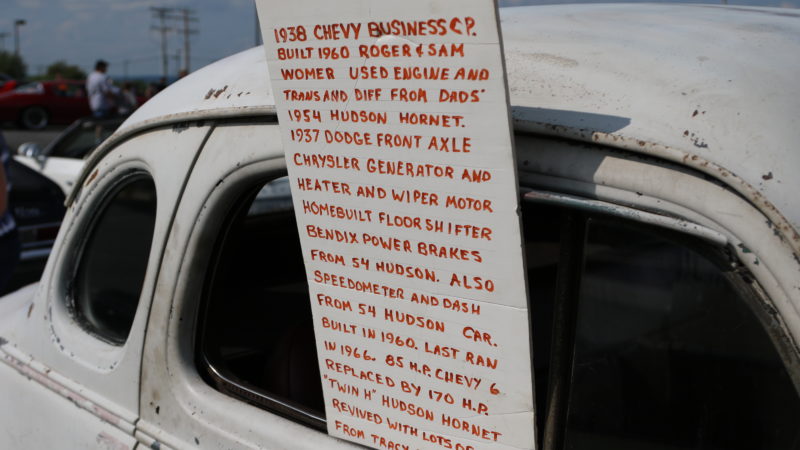 1938 CHEVY BUSINESS CP.
BUILT 1960 ROGER & SAM
WOMER USED ENGINE AND
TRANS AND DIFF FROM DADS'
1954 HUDSON HORNET.
1937 DODGE FRONT AXLE
CHRYSLER GENERATOR AND
HEATER AND WIPER MOTOR
HOMEBUILT FLOOR SHIFTER
BENDIX POWER BRAKES
FROM 54 HUDSON. ALSO
SPEEDOMETER AND DASH
FROM 54 HUDSON CAR.
BUILT IN 1960. LAST RAN
IN 1966. 85 H.P. CHEVY 6
REPLACED BY 170 H.P.
"TWIN H" HUDSON HORNET
REVIVED WITH LOTS OF
FROM TRACY